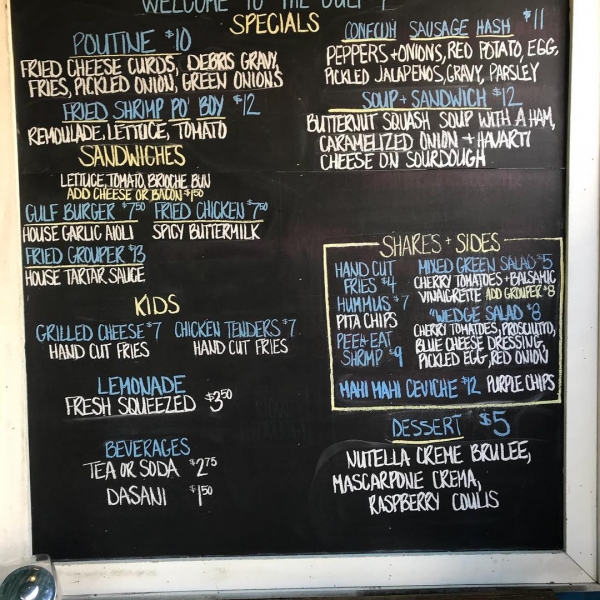 WELCOME TO THE GULF
SPECIALS
POUTINE $10
FRIED CHEESE CURDS, DEBRIS GRAVY,
FRIES, PICKLED ONION, GREEN ONIONS
FRIED SHRIMP PO' BOY $12
REMOULADE, LETTUCE, TOMATO
CONECUH SAUSAGE HASH $11
PEPPERS + ONIONS, RED POTATO, EGG,
PICKLED JALAPENOS, GRAVY, PARSLEY
SOUP + SANDWICH $12
BUTTERNUT SQUASH SOUP WITH A HAM,
CARAMELIZED ONION + HAVARTI
CHEESE ON SOURDOUGH
SANDWICHES
LETTUCE, TOMATO, BRIOCHE BUN
ADD CHEESE OR BACON $1.50
GULF BURGER $7.50 FRIED CHICKEN $7.50
HOUSE GARLIC AIOLI SPICY BUTTERMILK
FRIED GROUPER $13
HOUSE TARTAR SAUCE
KIDS
GRILLED CHEESE $7 CHICKEN TENDERS $7
HAND CUT FRIES HAND CUT FRIES
LEMONADE
FRESH SQUEEZED $3.50
BEVERAGES
TEA OR SODA $2.75
DASANI $1.50
SHARES + SIDES
HAND CUT
FRIES $4
HUMMUS $7
PITA CHIPS
PEEL + EAT
SHRIMP $9
MIXED GREEN SALAD $5
CHERRY TOMATOES + BALSAMIC
VINAIGRETTE ADD GROUPER $8
"WEDGE SALAD $8
CHERRY TOMATOES, PROSCIUTTO,
BLUE CHEESE DRESSING,
PICKLED EGG, RED ONION
MAHI MAHI CEVICHE $12 PURPLE CHIPS
DESSERT $5
NUTELLA CREME BRULEE,
MASCARPONE CREMA,
RASPBERRY COULIS